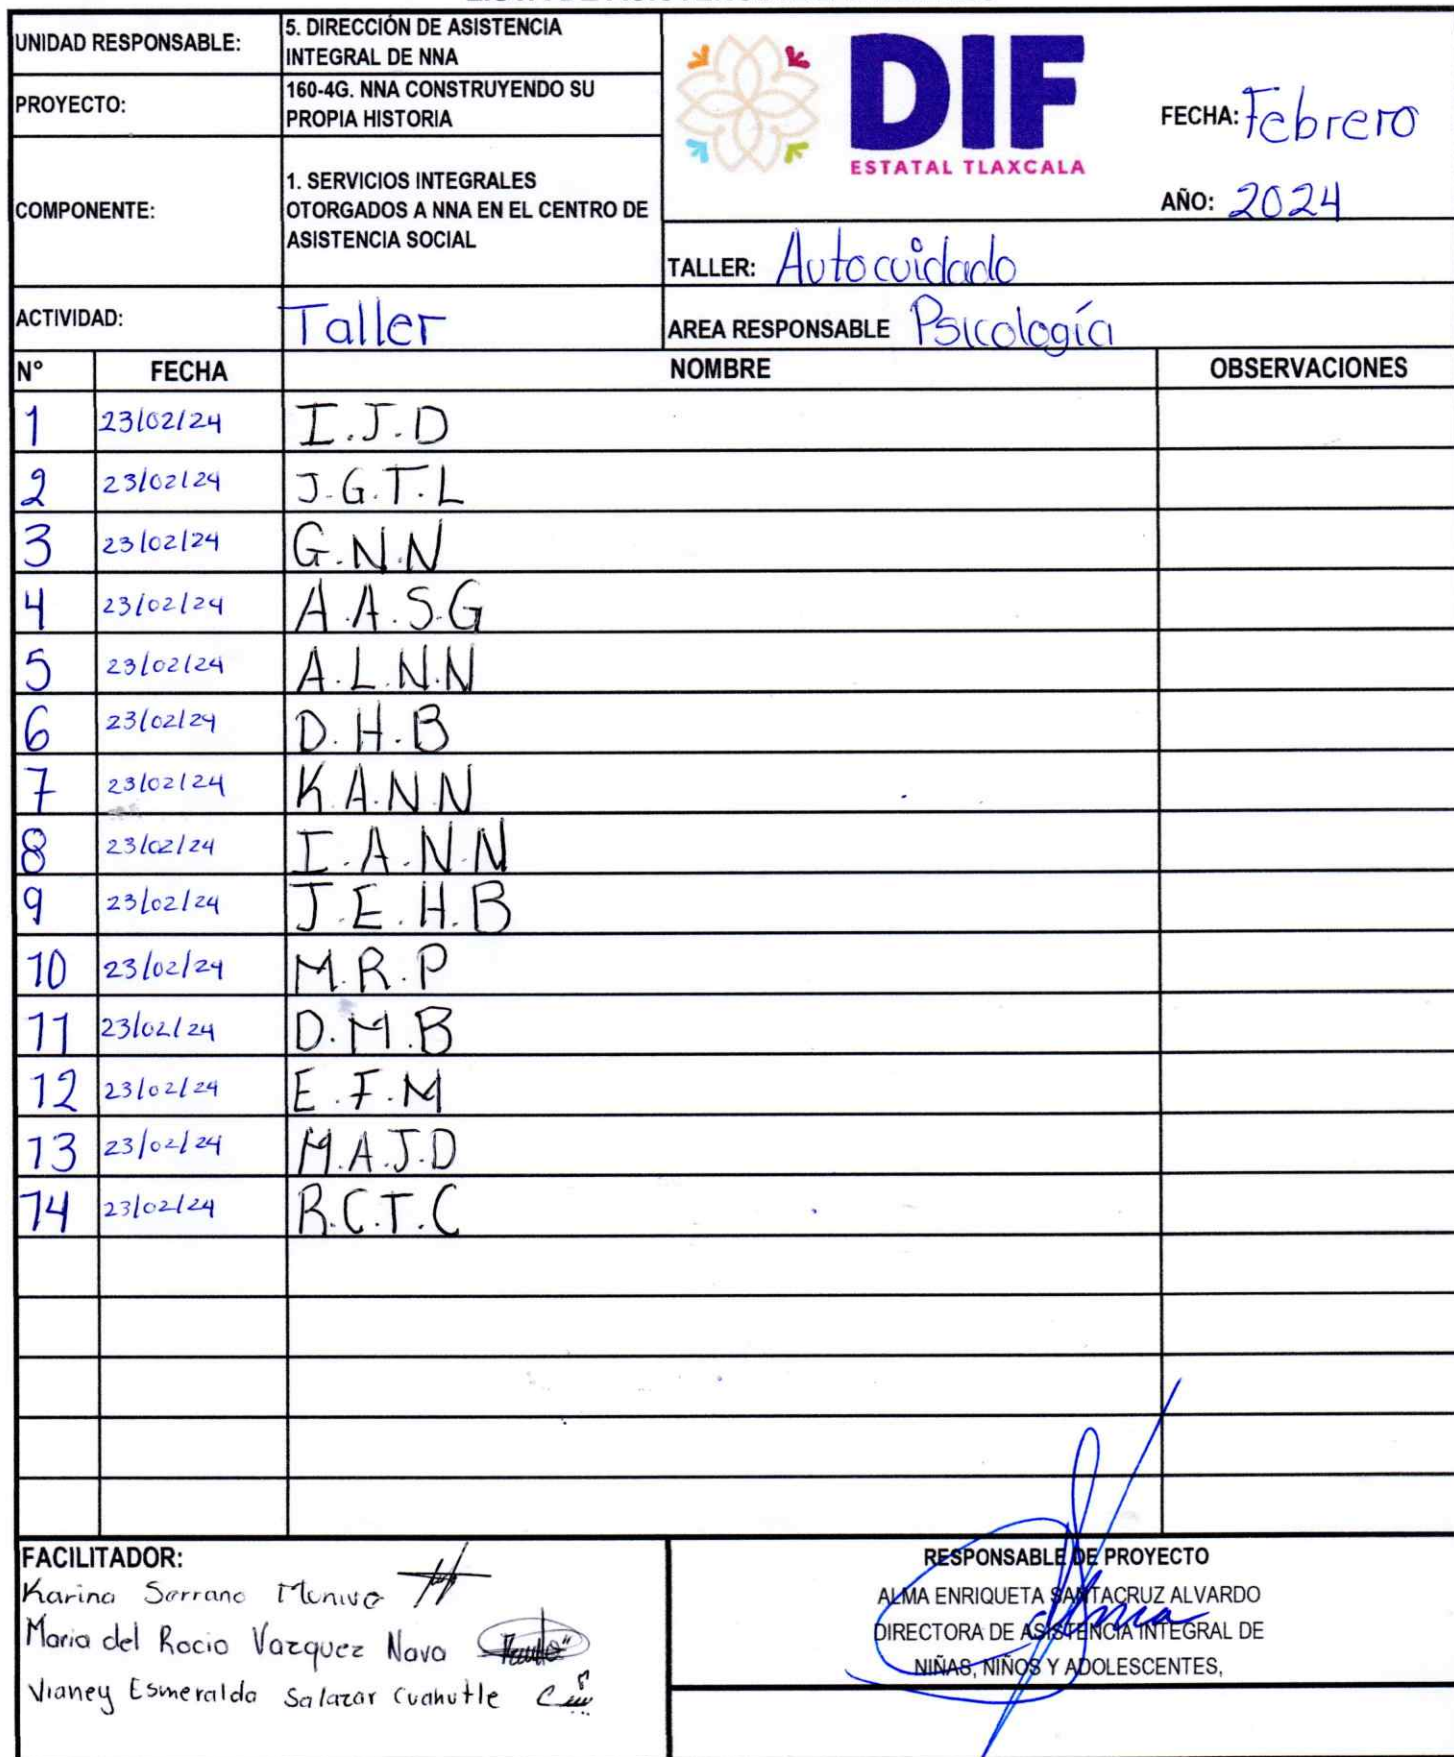 UNIDAD RESPONSABLE:
5. DIRECCIÓN DE ASISTENCIA
INTEGRAL DE NNA
PROYECTO:
160-4G. NNA CONSTRUYENDO SU
PROPIA HISTORIA
COMPONENTE:
1. SERVICIOS INTEGRALES
OTORGADOS A NNA EN EL CENTRO DE
ASISTENCIA SOCIAL
DIF
ESTATAL TLAXCALA
FECHA: Febrero
AÑO: 2024
TALLER: Autocuidado
ACTIVIDAD: Taller
AREA RESPONSABLE Psicología
N° FECHA NOMBRE OBSERVACIONES
1 23/02/24 I.J.D
2 23/02/24 J.G.T.L
3 23/02/24 G.N.N
4 23/02/24 A.A.S.G
5 23/02/24 A.L.N.N
6 23/02/24 D.H.B
7 23/02/24 K.A.N.N
8 23/02/24 I.A.N.N
9 23/02/24 J.E.H.B
10 23/02/24 M.R.P
11 23/02/24 D.M.B
12 23/02/24 E.F.M
13 23/02/24 M.A.J.D
14 23/02/24 R.C.T.C
FACILITADOR:
Karina Serrano
Maria del Rocio Vazquez Nava
Vianey Esmeralda Salazar Cuahutle
RESPONSABLE DE PROYECTO
ALMA ENRIQUETA SANTACRUZ ALVARDO
DIRECTORA DE ASISTENCIA INTEGRAL DE
NIÑAS, NIÑOS Y ADOLESCENTES,